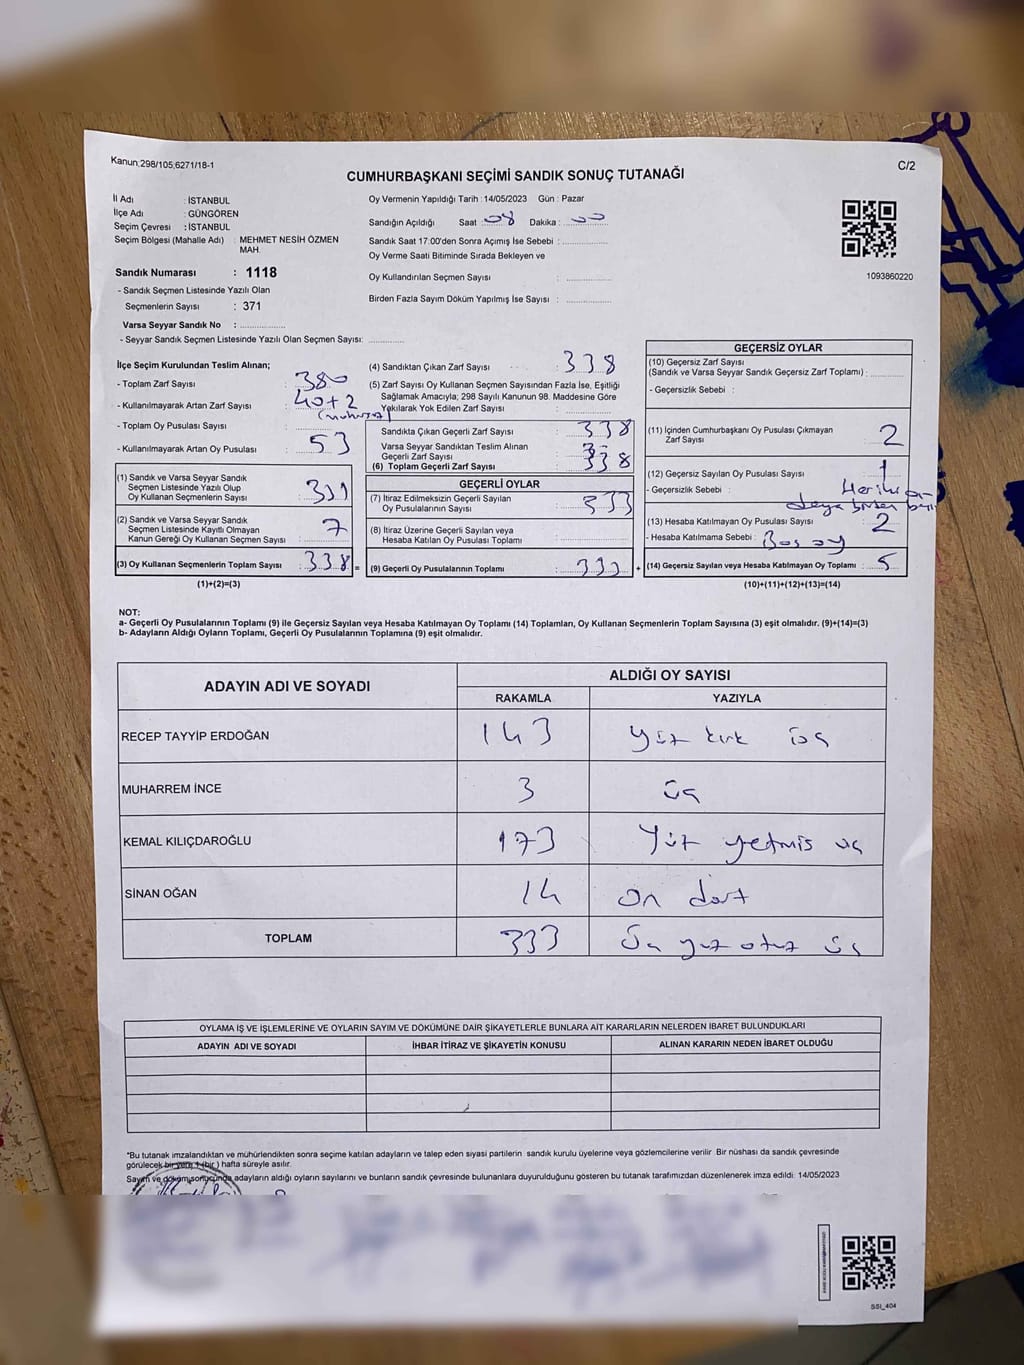 Kanun:298/105,6271/18-1
C/2
CUMHURBAŞKANI SEÇİMİ SANDIK SONUÇ TUTANAĞI
İl Adı : İSTANBUL
İlçe Adı : GÜNGÖREN
Seçim Çevresi : İSTANBUL
Seçim Bölgesi (Mahalle Adı) : MEHMET NESİH ÖZMEN
MAH.
Sandık Numarası : 1118
- Sandık Seçmen Listesinde Yazılı Olan
Seçmenlerin Sayısı : 371
Varsa Seyyar Sandık No : ................
- Seyyar Sandık Seçmen Listesinde Yazılı Olan Seçmen Sayısı: .............
Oy Vermenin Yapıldığı Tarih : 14/05/2023 Gün : Pazar
Sandığın Açıldığı Saat : 08 Dakika : 00
Sandık Saat 17:00'den Sonra Açımış İse Sebebi : ................
Oy Verme Saati Bitiminde Sırada Bekleyen ve
Oy Kullandırılan Seçmen Sayısı : ................
Birden Fazla Sayım Döküm Yapılmış İse Sayısı : ................
1093860220
İlçe Seçim Kurulundan Teslim Alınan;
- Toplam Zarf Sayısı : 380
- Kullanılmayarak Artan Zarf Sayısı : 40+2
- Toplam Oy Pusulası Sayısı :
- Kullanılmayarak Artan Oy Pusulası : 53
(1) Sandık ve Varsa Seyyar Sandık
Seçmen Listesinde Yazılı Olup
Oy Kullanan Seçmenlerin Sayısı : 331
(2) Sandık ve Varsa Seyyar Sandık
Seçmen Listesinde Kayıtlı Olmayan
Kanun Gereği Oy Kullanan Seçmen Sayısı : 7
(3) Oy Kullanan Seçmenlerin Toplam Sayısı : 338 =
(1)+(2)=(3)
(4) Sandıktan Çıkan Zarf Sayısı : 338
(5) Zarf Sayısı Oy Kullanan Seçmen Sayısından Fazla İse, Eşitliği
Sağlamak Amacıyla; 298 Sayılı Kanunun 98. Maddesine Göre
Yakılarak Yok Edilen Zarf Sayısı : ................
Sandıkta Çıkan Geçerli Zarf Sayısı : 338
Varsa Seyyar Sandıktan Teslim Alınan
Geçerli Zarf Sayısı :
(6) Toplam Geçerli Zarf Sayısı : 338
GEÇERLİ OYLAR
(7) İtiraz Edilmeksizin Geçerli Sayılan
Oy Pusulalarının Sayısı : 333
(8) İtiraz Üzerine Geçerli Sayılan veya
Hesaba Katılan Oy Pusulası Toplamı : ................
(9) Geçerli Oy Pusulalarının Toplamı : 333 +
GEÇERSİZ OYLAR
(10) Geçersiz Zarf Sayısı
(Sandık ve Varsa Seyyar Sandık Geçersiz Zarf Toplamı) : ............
- Geçersizlik Sebebi :
(11) İçinden Cumhurbaşkanı Oy Pusulası Çıkmayan
Zarf Sayısı : 2
(12) Geçersiz Sayılan Oy Pusulası Sayısı : 1
- Geçersizlik Sebebi :
(13) Hesaba Katılmayan Oy Pusulası Sayısı : 2
- Hesaba Katılmama Sebebi : Boş oy
(14) Geçersiz Sayılan veya Hesaba Katılmayan Oy Toplamı : 5
(10)+(11)+(12)+(13)=(14)
NOT:
a- Geçerli Oy Pusulalarının Toplamı (9) ile Geçersiz Sayılan veya Hesaba Katılmayan Oy Toplamı (14) Toplamları, Oy Kullanan Seçmenlerin Toplam Sayısına (3) eşit olmalıdır. (9)+(14)=(3)
b- Adayların Aldığı Oyların Toplamı, Geçerli Oy Pusulalarının Toplamına (9) eşit olmalıdır.
ADAYIN ADI VE SOYADI ALDIĞI OY SAYISI
RAKAMLA YAZIYLA
RECEP TAYYİP ERDOĞAN 143 yüz kırk üç
MUHARREM İNCE 3 üç
KEMAL KILIÇDAROĞLU 173 Yüz yetmis üç
SİNAN OĞAN 14 on dört
TOPLAM 333 Üç yüz otuz üç
OYLAMA İŞ VE İŞLEMLERİNE VE OYLARIN SAYIM VE DÖKÜMÜNE DAİR ŞİKAYETLERLE BUNLARA AİT KARARLARIN NELERDEN İBARET BULUNDUKLARI
ADAYIN ADI VE SOYADI İHBAR İTİRAZ VE ŞİKAYETİN KONUSU ALINAN KARARIN NEDEN İBARET OLDUĞU
*Bu tutanak imzalandıktan ve mühürlendikten sonra seçime katılan adayların ve talep eden siyasi partilerin sandık kurulu üyelerine veya gözlemcilerine verilir. Bir nüshası da sandık çevresinde
görülecek bir yere 1 (bir) hafta süreyle asılır.
Sayım ve döküm sonucunda adayların aldığı oyların sayılarını ve bunların sandık çevresinde bulunanlara duyurulduğunu gösteren bu tutanak tarafımızdan düzenlenerek imza edildi: 14/05/2023
SSI_404